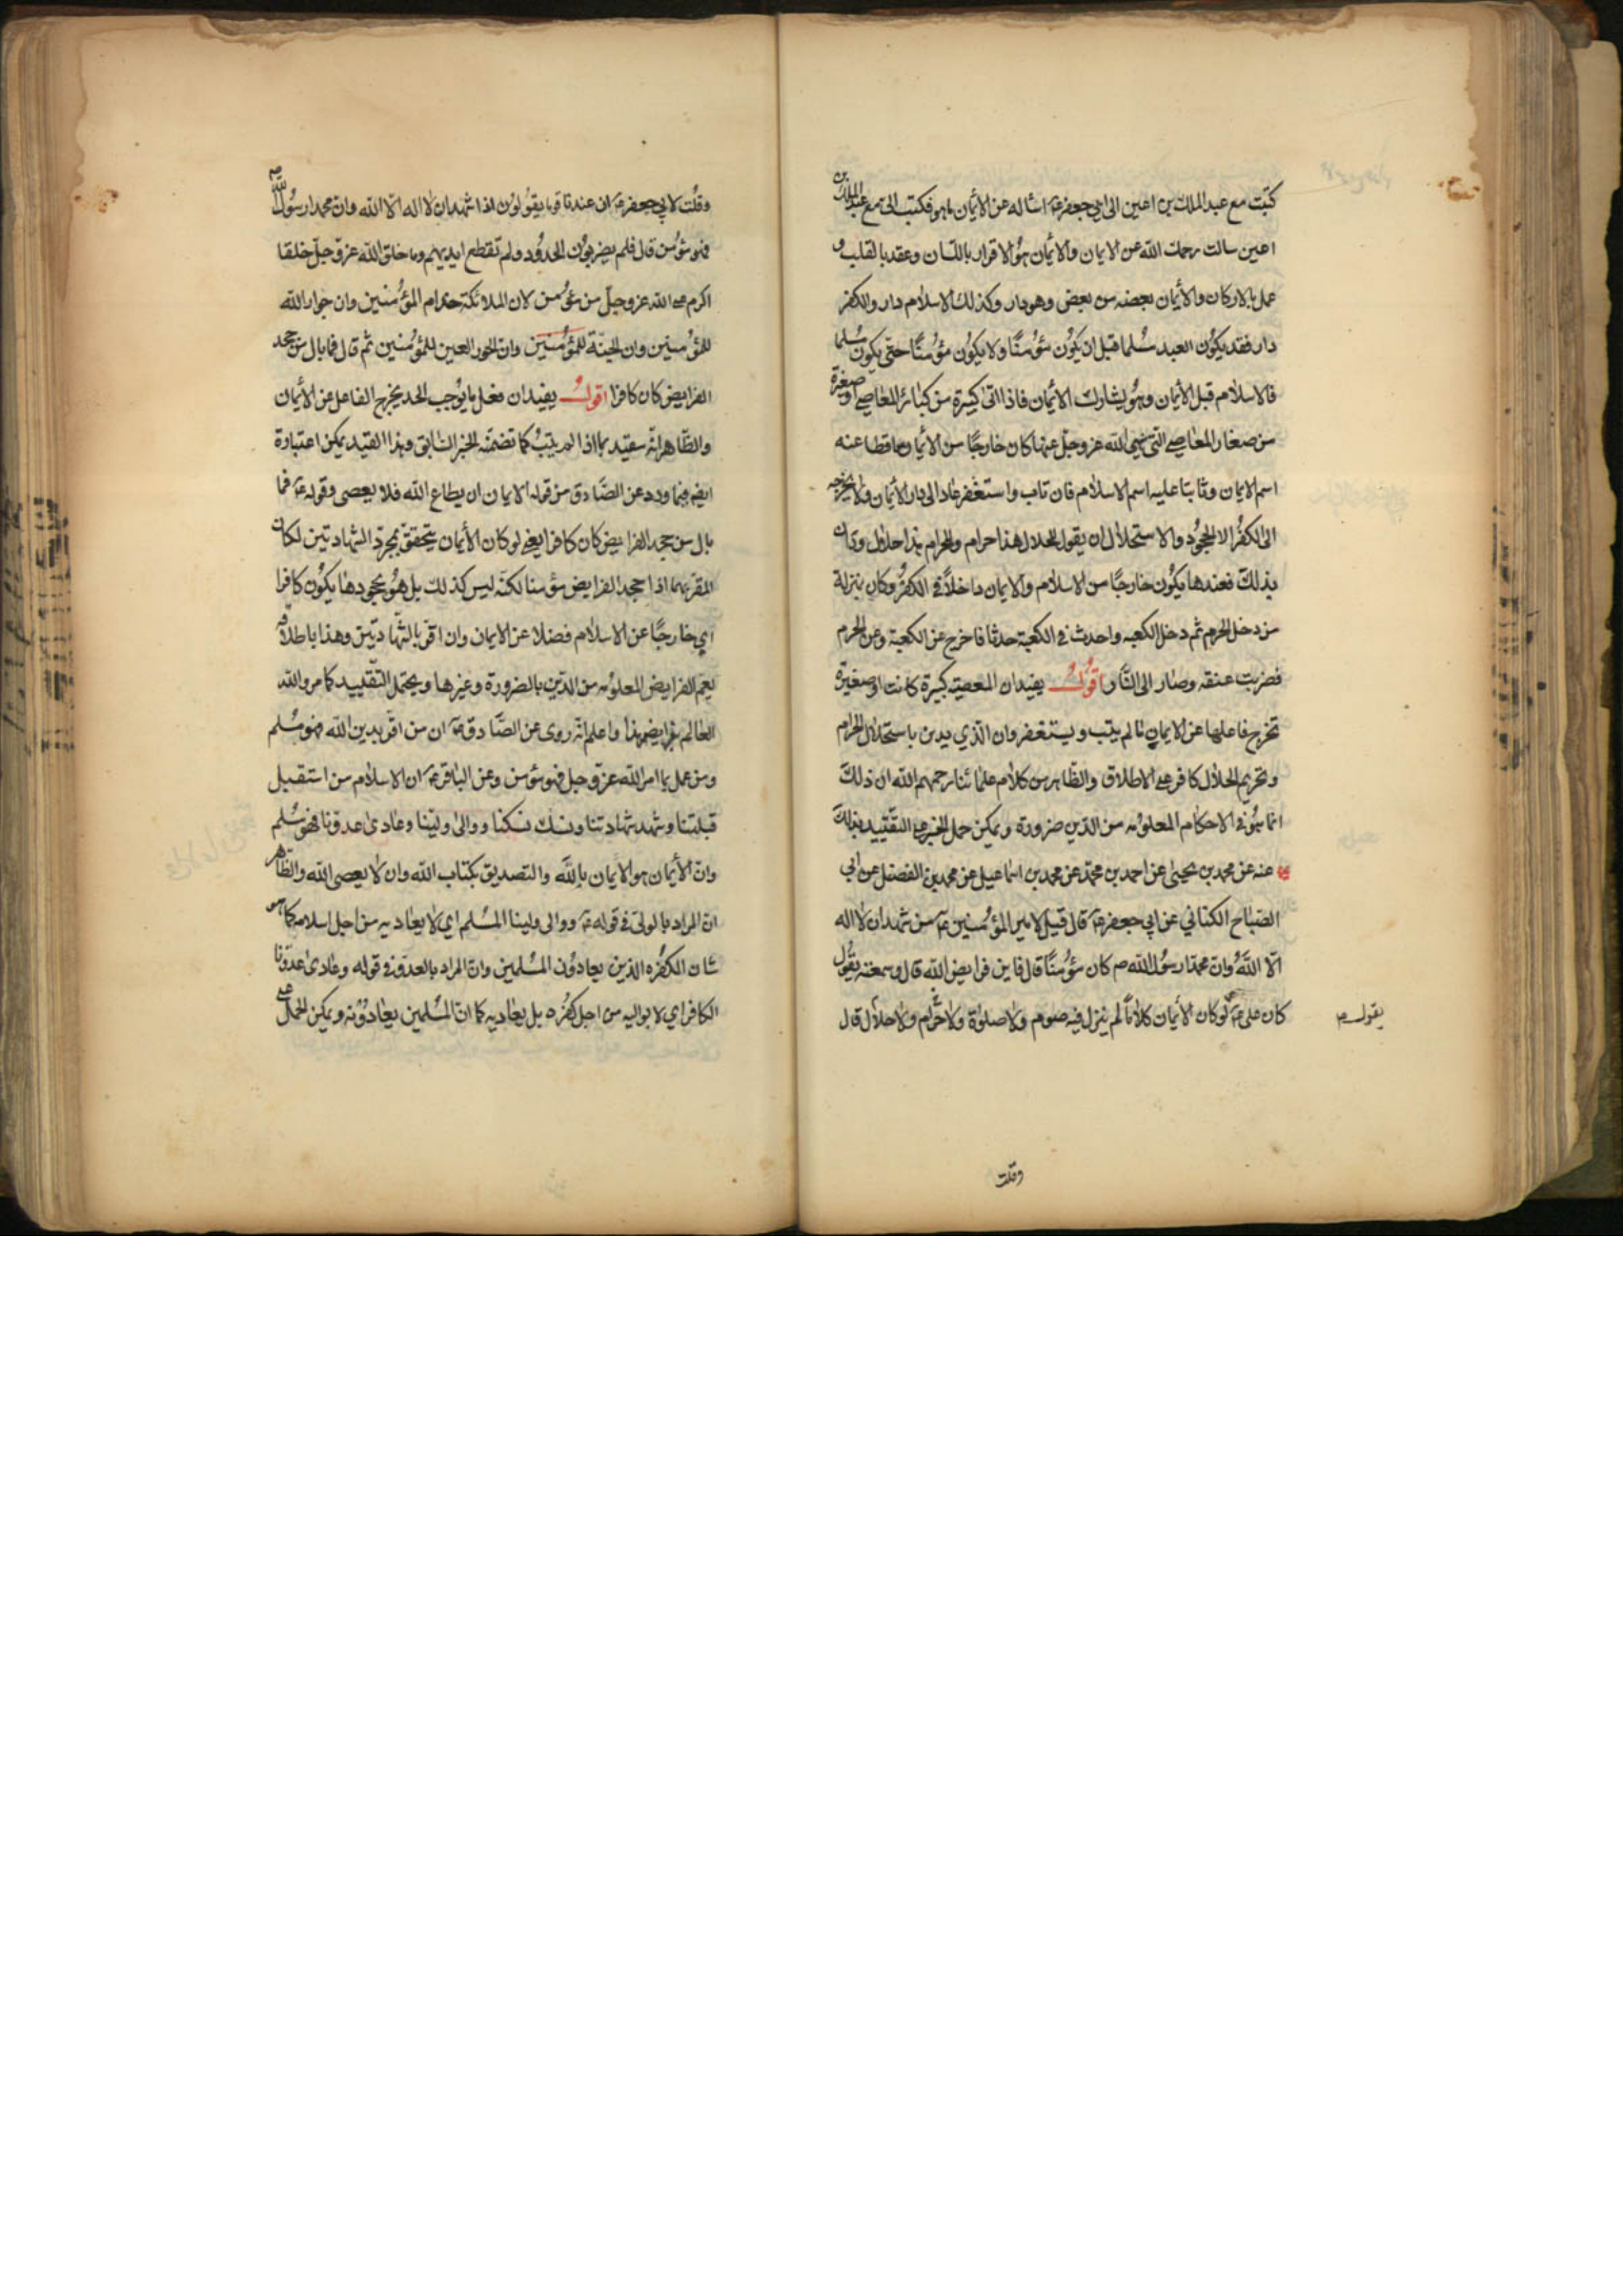 كتبت مع عبد الملك بن اعين الى ابي جعفر ع اساله عن الأيمان ما هو فكتب الي مع عبد الملك بن
اعين سالت رحمك الله عن الايمان والأيمان هو الاقرار باللسان وعقد بالقلب و
عمل بالاركان والأيمان بعضه من بعض وهو دار وكذلك الاسلام دار والكفر
دار فقد يكون العبد مسلما قبل ان يكون مؤمنًا ولا يكون مؤمنًا حتى يكون مسلما
فالاسلام قبل الأيمان وهو يشارك الأيمان فاذا اتى كبيرة من كبائر المعاصي او صغيرة
من صغار المعاصي التي نهى الله عز وجل عنها كان خارجًا من الأيمان ساقطا عنه
اسم الايمان وثابتا عليه اسم الاسلام فان تاب واستغفر عاد الى دار الأيمان ولا يخرجه
الى الكفر الا الجحود والاستحلال ان يقول للحلال هذا حرام وللحرام هذا حلال ودان
بذلك فعندها يكون خارجًا من الاسلام والايمان داخلاً في الكفر وكان بمنزلة
من دخل الحرم ثم دخل الكعبه واحدث في الكعبة حدثا فاخرج عن الكعبة وعن الحرم
فضربت عنقه وصار الى النار اقول يفيد ان المعصية كبيرة كانت او صغيرة
تخرج فاعلها عن الايمان ما لم يتب ويستغفر وان الذي يدين باستحلال الحرام
وتحريم الحلال كافر على الاطلاق والظاهر من كلام علمائنا رحمهم الله ان ذلك
انما هو في الاحكام المعلومه من الدين ضرورة ويمكن حمل الخبر على التقييد بذلك
عنه عن محمد بن يحيى عن احمد بن محمد عن محمد بن اسماعيل عن محمد بن الفضل عن ابي
الصباح الكناني عن ابي جعفر ع قال قيل لامير المؤمنين ع من شهد ان لا اله
الا الله وان محمدا رسول الله ص كان مؤمنًا قال فاين فرايض الله قال وسمعته يقول
كان علي ع لو كان الأيمان كلامًا لم ينزل فيه صوم ولا صلوة ولا حرام ولا حلال قال
يقول
وقلت
وقلت لابي جعفر ع ان عندنا قوما يقولون اذا شهد ان لا اله الا الله وان محمدا رسول الله ص
فهو مؤمن قال فلم يضربون الحدود ولم تقطع ايديهم وما خلق الله عز وجل خلقا
اكرم على الله عز وجل من مؤمن لان الملائكة خدام المؤمنين وان جوار الله
للمؤمنين وان الجنة للمؤمنين وان الحور العين للمؤمنين ثم قال فما بال من جحد
الفرايض كان كافرا اقول يفيد ان فعل ما يوجب الحد يخرج الفاعل عن الأيمان
والظاهر انه مقيد بما اذا لم يتب كما تضمنه الخبر السابق وهذا القيد يمكن اعتباره
ايضا فيما ورد عن الصادق من قوله الايمان ان يطاع الله فلا يعصى وقوله ع فما
بال من جحد الفرايض كان كافرا يعني لو كان الأيمان يتحقق بمجرد الشهادتين لكان
المقر بهما اذا جحد الفرايض مؤمنا لكنه ليس كذلك بل هو بجحودها يكون كافرا
اي خارجًا عن الاسلام فضلا عن الايمان وان اقر بالشهادتين وهذا باطلاقه
يعم الفرايض المعلومه من الدين بالضرورة وغيرها ويحتمل التقييد كما مر والله
العالم بفرايضه هذا واعلم انه روى عن الصادق ع ان من اقر بدين الله فهو مسلم
ومن عمل بما امر الله عز وجل فهو مؤمن وعن الباقر ع ان الاسلام من استقبل
قبلتنا وشهد شهادتنا ونسك نسكنا ووالى ولينا وعادى عدونا فهو مسلم
وان الأيمان هو الايمان بالله والتصديق بكتاب الله وان لا يعصى الله والظاهر
ان المراد بالولي في قوله ع ووالى ولينا المسلم اي لا يعاديه من اجل اسلامه كما هو
شان الكفره الذين يعادون المسلمين وان المراد بالعدو في قوله وعادى عدونا
الكافر اي لا يواليه من اجل كفره بل يعاديه كما ان المسلمين يعادونه ويمكن الحمل على